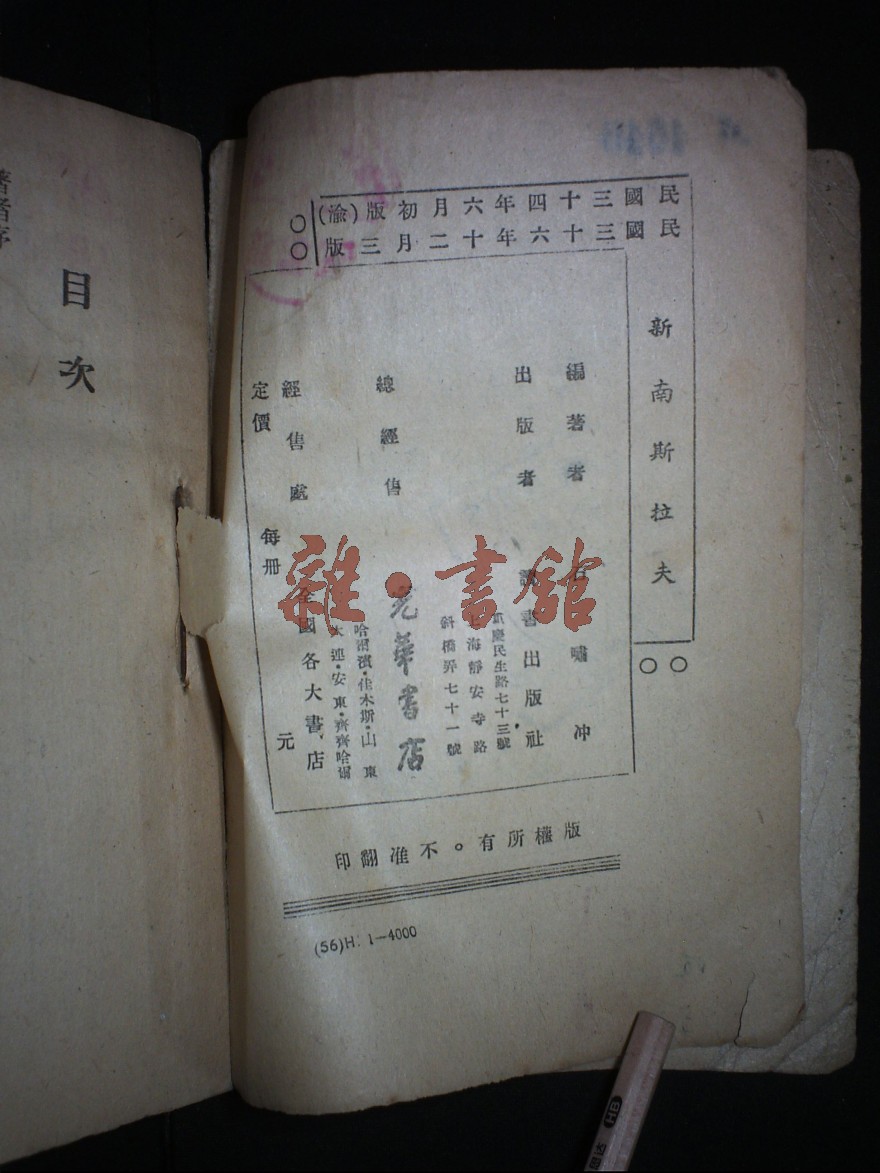 著者序
目次
民國三十四年六月初版(渝)
民國三十六年十二月三版
新南斯拉夫
編著者 石嘯冲
出版者 讀書出版社
重慶民生路七十三號
上海靜安寺路
斜橋弄七十一號
總經售 光華書店
哈爾濱·佳木斯·山東
大連·安東·齊齊哈爾
經售處 全國各大書店
定價 每冊 元
版權所有。不准翻印
(56)H: 1—4000
雜·書館
HB